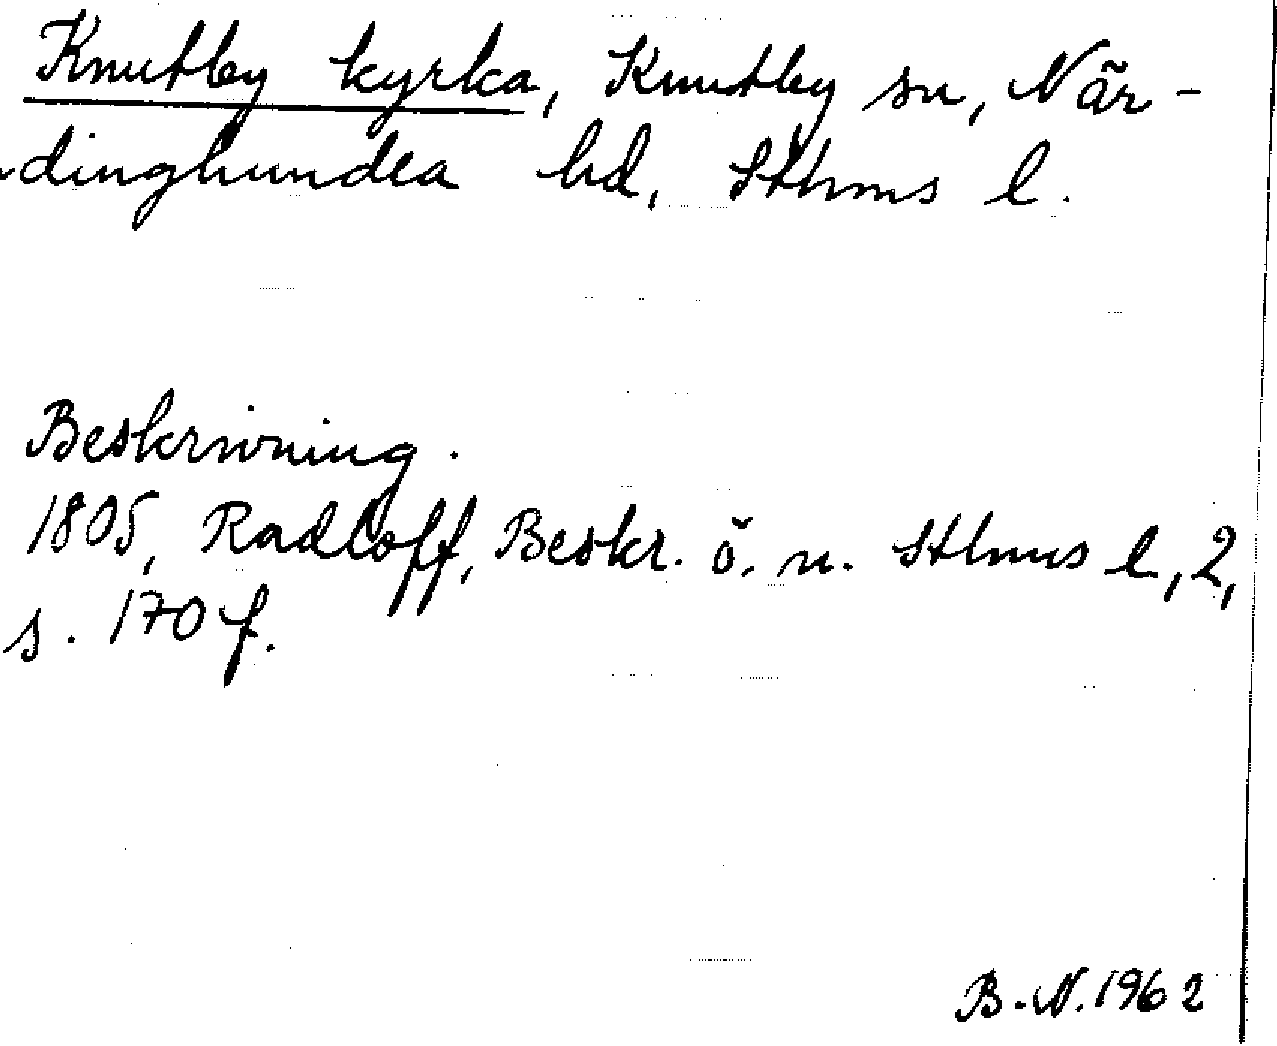 Knutby kyrka, Knutby sn, När-
dinghundra hd, Sthms l.
Beskrivning.
1805, Radloff, Beskr. ö. n. Sthms l, 2,
s. 170 f.
B.N. 1962